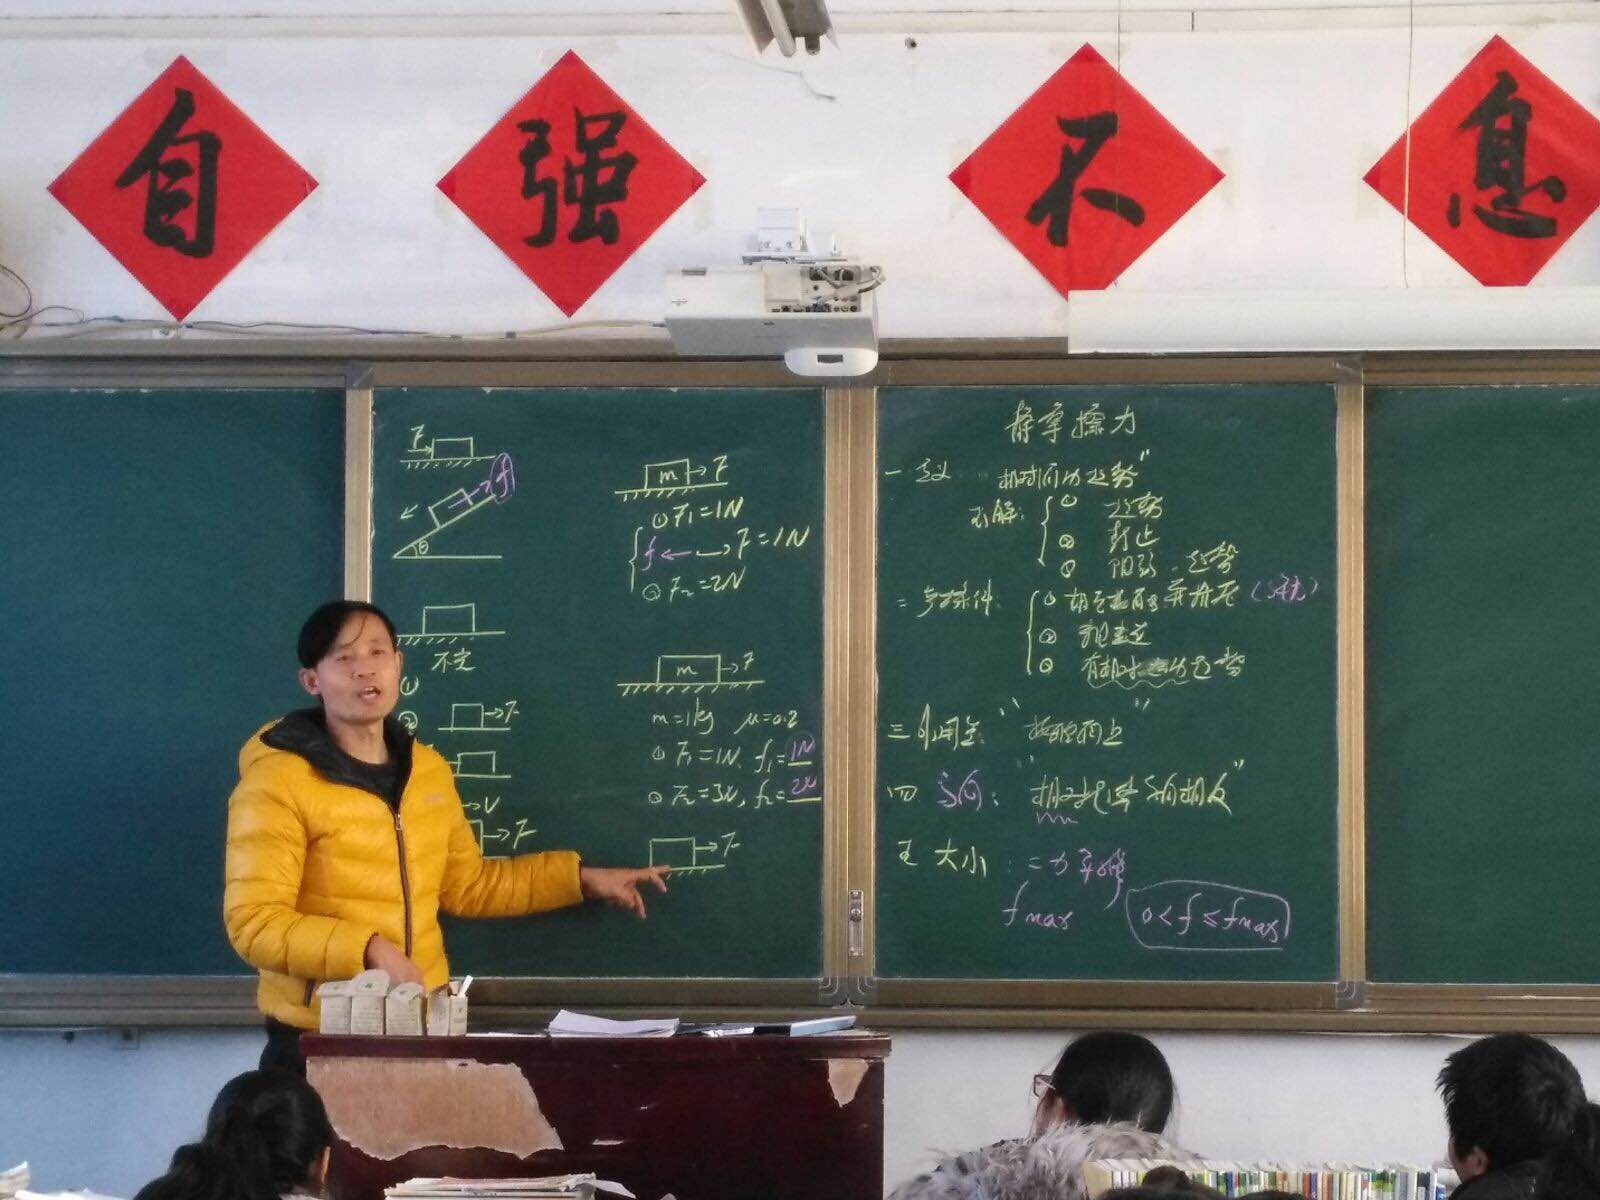 自强不息
F
f
θ
不定
①
②
F
V
F
m F
①F₁=1N
f F=1N
②F₂=2N
m F
m=1kg μ=0.2
①F₁=1N, f₁=1N
②F₂=3N, f₂=2N
F
静摩擦力
一 定义 相对运动趋势"
理解: ① 趋势
② 静止
③ 阻碍 趋势
二 条件: ①
②
③ 有相对运动趋势
三 作用点: "接触面上"
四 方向: "相对 趋势方向相反"
五 大小: 二力平衡
fmax 0<f≤fmax